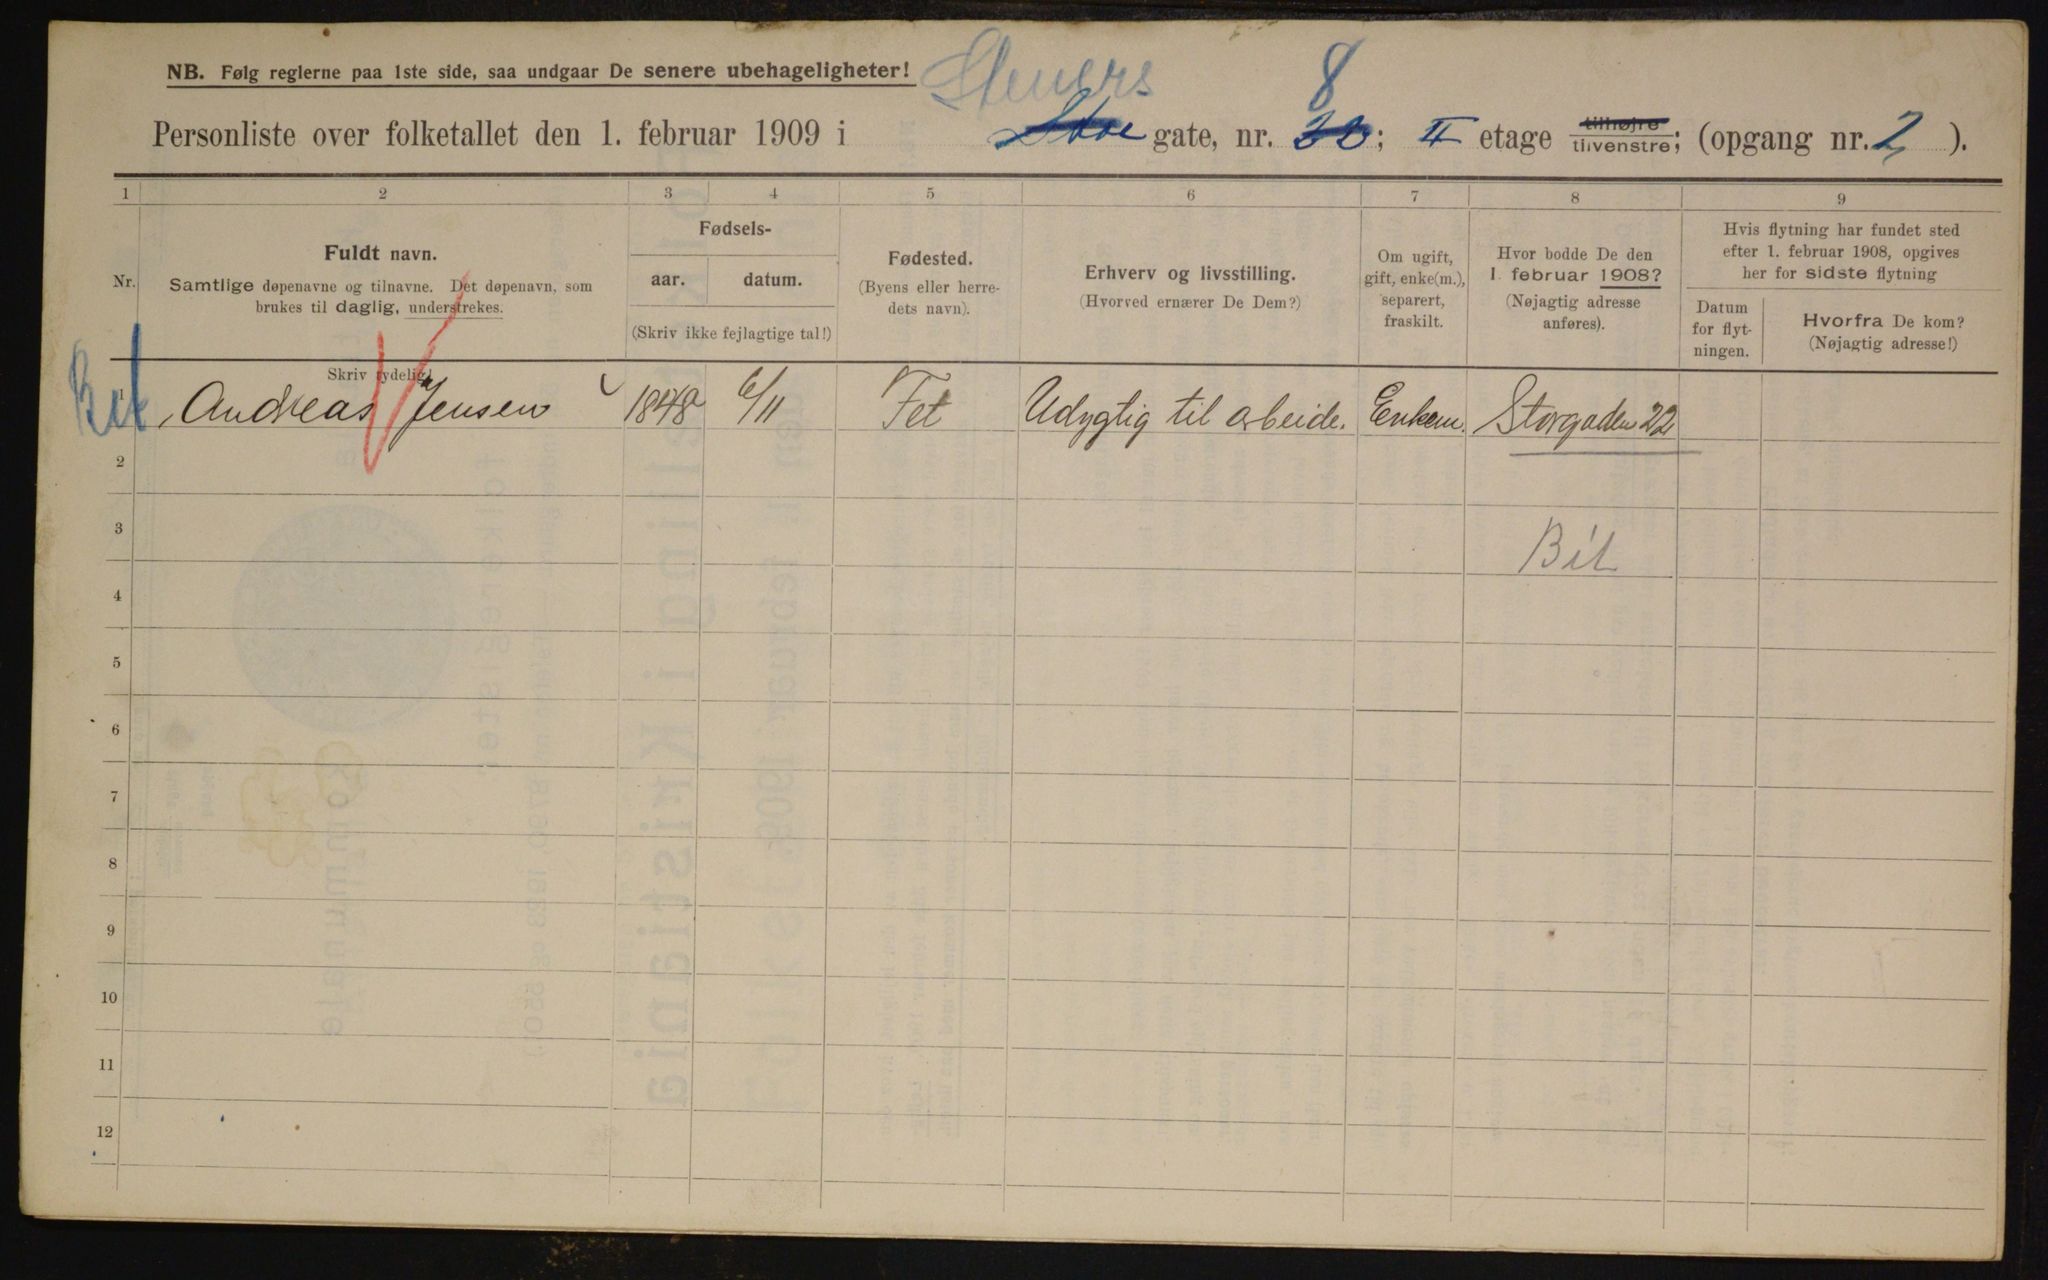 NB. Følg reglerne paa 1ste side, saa undgaar De senere ubehageligheter!
Steners 8
Personliste over folketallet den 1. februar 1909 i Stor gate, nr. 20; II etage tilhøjre tilvenstre; (opgang nr. 2).
1 2 3 4 5 6 7 8 9
Nr.
Fuldt navn.
Samtlige døpenavne og tilnavne. Det døpenavn, som
brukes til daglig, understrekes.
Skriv tydelig!
Fødsels-
aar. datum.
(Skriv ikke fejlagtige tal!)
Fødested.
(Byens eller herre-
dets navn).
Erhverv og livsstilling.
(Hvorved ernærer De Dem?)
Om ugift,
gift, enke(m.),
separert,
fraskilt.
Hvor bodde De den
1. februar 1908?
(Nøjagtig adresse
anføres).
Hvis flytning har fundet sted
efter 1. februar 1908, opgives
her for sidste flytning
Datum
for flyt-
ningen.
Hvorfra De kom?
(Nøjagtig adresse!)
Bil
1 Andreas Jensen 1848 6/11 Fet Udygtig til arbeide. Enkem. Storgaden 22
2
3
Bil
4
5
6
7
8
9
10
11
12